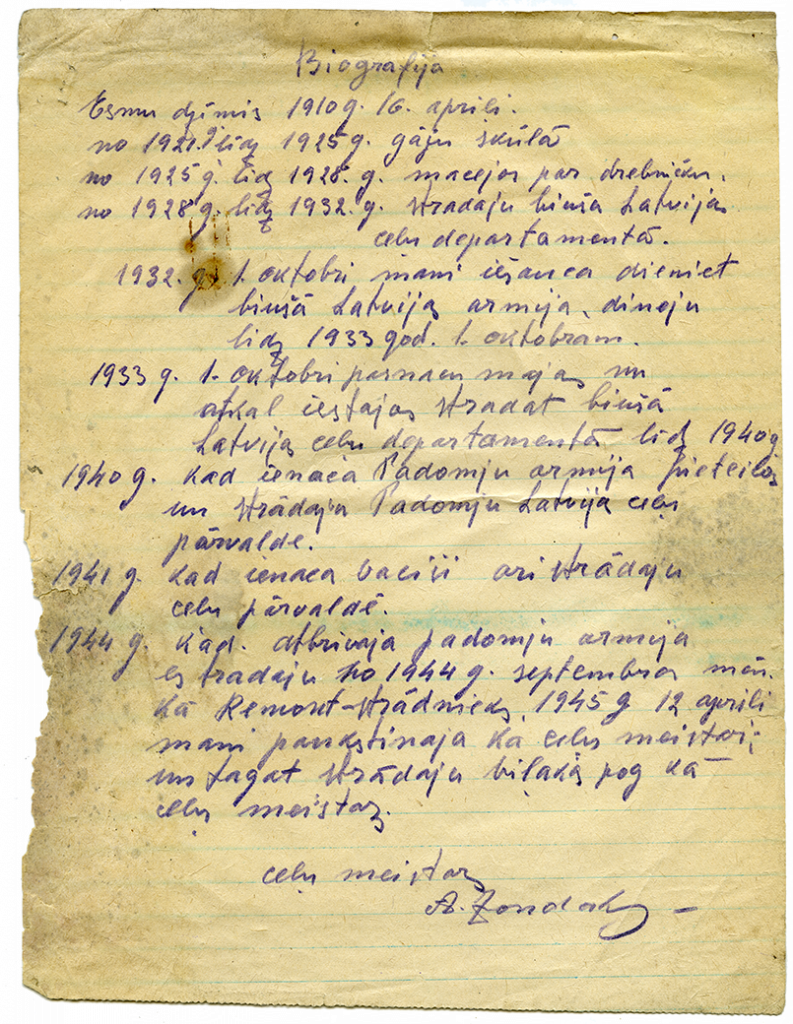 Biografija
Esmu dzimis 1910 g. 16. aprili.
no 1921. g lidz 1925 g. gāju skūlā
no 1925 g. lidz 1928. g. macejos par drebnieku.
no 1928 g. lidz 1932. g. stradaju biuša Latvijas
celu departamentā.
1932. g. 1. oktobri mani iesauca dieniet
biušā Latvijas armija, dineju
lidz 1933 god. 1. oktobram.
1933 g. 1. oktobri parnacu majas un
atkal iestajos stradat biušā
Latvijas celu departamentā lidz 1940 g
1940 g. kad ienāca Padomju armija pieteilos
un strādaju Padomju Latvija celu
pārvalde.
1941 g. kad ienaca vacieši ari strādaju
celu pārvaldē.
1944 g. kad. atbrivaja padomju armija
es tradaju no 1944 g. septembra mēn.
kā Remont-strādnieks, 1945 g 12 aprili
mani paukstinaja ka celu meistari,
un tagat strādaju bilakā pog kā
ceļu meistars.
ceļu meistars
A. Zondaks